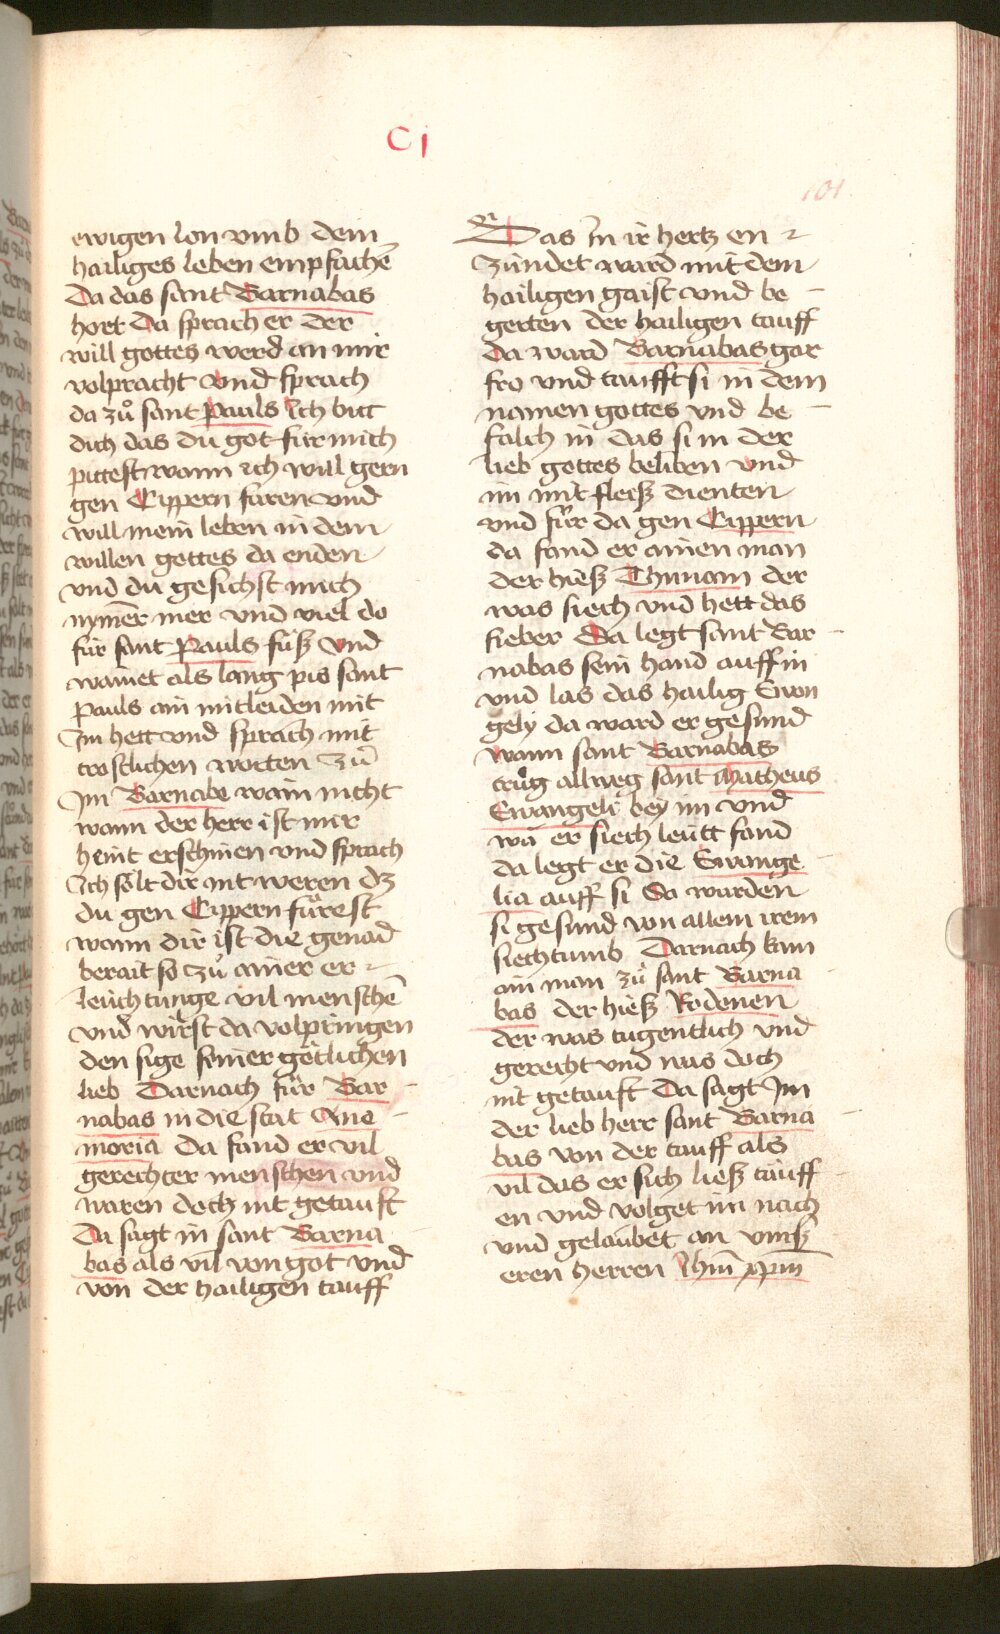 C j
101
ewigen lon vmb dein
hailiges leben empfachē
Da das sant Barnabas
hort Da sprach er der
will gottes werd an mir
volpracht Vnd sprach
da zů sant Pauls Ich bitt
dich das du got für mich
pittest wann ich will gern
gen Cippern faren vnd
will mein leben in dem
willen gottes da enden
vnd du gesichst mich
nymēr mer vnd viel do
für sant Pauls füß Vnd
wainet als lang pis sant
Pauls ain mitleiden mit
Im hett vnd sprach mit
trostlichen worten Zů
Im Barnabe wain nicht
wann der herr ist mir
heint erschinen vnd sprach
Ich sölt dir nit weren dz
du gen Cippern fůrest
wann dir ist die genad
berait so zů ainer er
leuchtunge vil menschē
vnd wirst da volpringen
den sige seiner götlichen
lieb Darnach fůr Bar
nabas in die stat Ane
moria Da fand er vil
gerechter menschen vnd
waren doch nit getauft
Da sagt in sant Barna
bas als vil von got vnd
von der hailigen tauff
er
Das in ir hertz en
Zündet ward mit dem
hailigen gaist vnd be
gerten der hailigen tauff
da ward Barnabas gar
fro vnd taufft si in dem
namen gottes vnd be
falch in das si in der
lieb gottes beliben vnd
im mit fleiß dienten
vnd fůr da gen Cippern
da fand er ainen man
der hieß Thimam der
was siech vnd hett das
fieber Da legt sant Bar
nabas sein hand auff in
vnd las das hailig Ewan
gely da ward er gesund
wann sant Barnabas
trůg allweg sant Matheus
Ewangeli bey im vnd
wa er siech leütt fand
da legt er die Ewange
lia auff si So wurden
si gesund von allem irem
siechtumb Darnach kam
ain man zů sant Barna
bas der hieß Rodenen
der was tugentlich vnd
gerecht vnd was doch
nit getauft Da sagt Im
der lieb herr sant Barna
bas von der tauff als
vil das er sich ließ tauff
en vnd volget im nach
vnd gelaubet an vnnß
eren herren Ihm̄ xpm̄